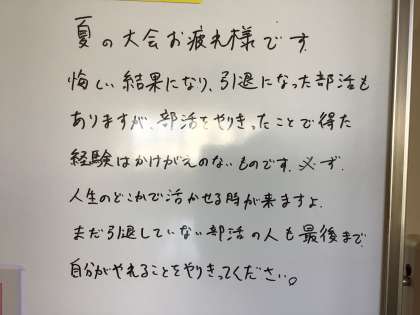 夏の大会お疲れ様です。
悔しい結果になり、引退になった部活も
ありますが、部活をやりきったことで得た
経験はかけがえのないものです。必ず、
人生のどこかで活かせる時が来ますよ。
まだ引退していない部活の人も最後まで
自分がやれることをやりきってください。